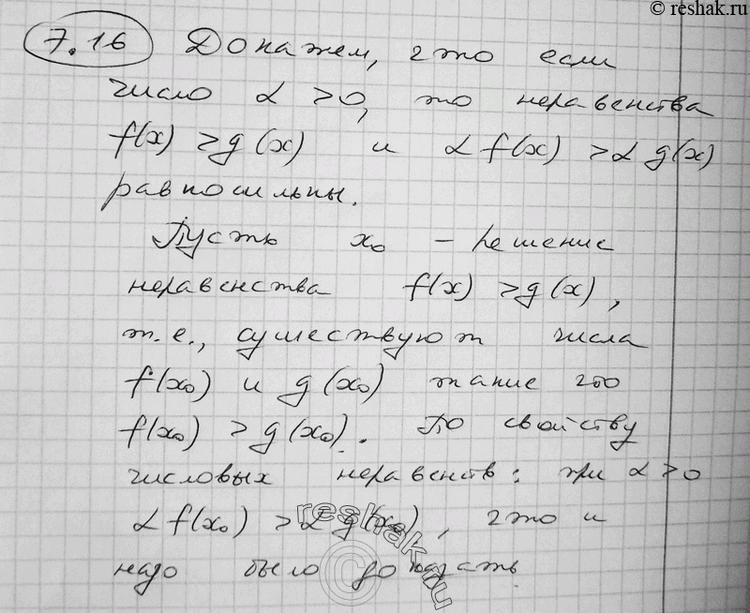 © reshak.ru
7.16 Докажем, что если
число α > 0, то неравенства
f(x) > g(x) и α f(x) > α g(x)
равносильны.
Пусть x₀ – решение
неравенства f(x) > g(x),
т.е., существуют числа
f(x₀) и g(x₀) такие что
f(x₀) > g(x₀). По свойству
числовых неравенств: при α > 0
α f(x₀) > α g(x₀), что и
надо было доказать.
reshak.ru
©